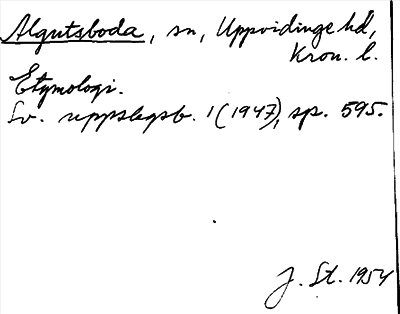 Algutsboda, sn, Uppvidinge hd,
Kron. l.
Etymologi.
Sv. uppslagsb. 1 (1947), sp. 595.
J. St. 1954